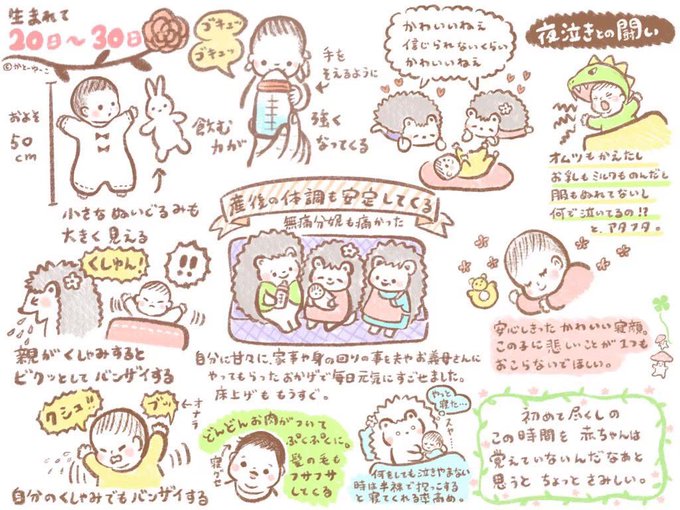 生まれて
20日〜30日
©かとーゆーこ
およそ
50
cm
小さなぬいぐるみも
大きく見える
ゴキュッ
ゴキュッ
手も
そえるように
飲む
力が
強く
なってくる
かわいいねぇ
信じられないくらい
かわいいねぇ
夜泣きとの闘い
オムツもかえたし
お乳もミルクものんだし
服もぬれてないし
何で泣いてるの!?
と、アタフタ。
産後の体調も安定してくる
無痛分娩も痛かった
自分に甘々に、家事や身の回りの事を夫やお義母さんに
やってもらったおかげで毎日元気にすごせました。
床上げももうすぐ。
くしゅん!
!!
親がくしゃみすると
ビクッとしてバンザイする
クシュ!!
ブッ
オナラ
自分のくしゃみでもバンザイする
どんどんお肉がついて
ぷくぷくに。
髪の毛も
フサフサ
してくる
寝ぐせ
やっと
寝た…
スヤ
何をしても泣きやまない
時は半裸で抱っこする
と寝てくれる率高め。
安心しきったかわいい寝顔。
この子に悲しいことが1つも
おこらないでほしい。
初めて尽くしの
この時間を赤ちゃんは
覚えていないんだなあと
思うとちょっとさみしい。